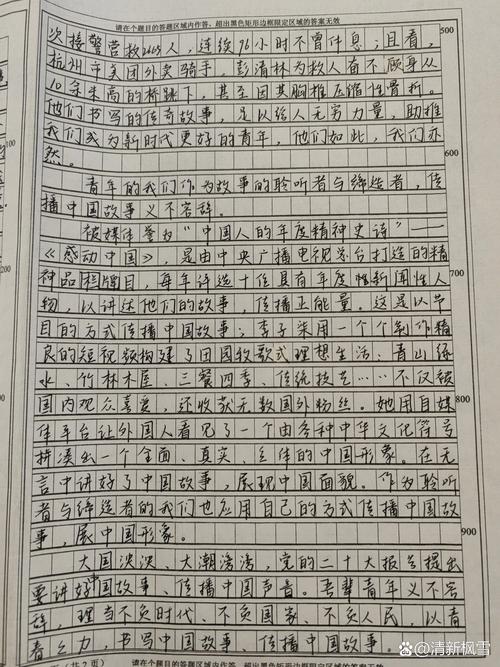 请在个题目的答题区域内作答，超出黑色矩形边框限定区域的答案无效
次接警营救2665人，连续96小时不曾休息；且看， 500
杭州市美团外卖骑手，彭清林为救人奋不顾身从
10余米高的桥跳下，甚至因其胸椎压缩性骨折。
他们书写的传奇故事，足以给人无穷力量，助推
我们成为新时代更好的青年，他们如此，我们亦
然。 600
青年的我们作为故事的聆听者与缔造者，传
播中国故事义不容辞。
被媒体誉为“中国人的年度精神史诗”——
《感动中国》，是由中央广播电视总台打造的精
神品栏牌目，每年评选十位具有年度性新闻性人 700
物，以讲述他们的故事，传播正能量。这是以节
目的方式传播中国故事；李子柒用一个个制作精
良的短视频构建了田园牧歌式理想生活：青山绿
水、竹林木屋、三餐四季、传统技艺……不仅被
国内观众喜爱，还收获无数国外粉丝。她用自媒 800
体平台让外国人看见了一个由多种中华文化符号
拼凑出一个全面、真实、立体的中国形象。在无
言中讲好了中国故事，展现中国面貌。作为聆听
者与缔造者的我们也应用自己的方式传播中国故
事，展中国形象。 900
大国泱泱、大潮滂滂，党的二十大报告提出
要讲好中国故事、传播中国声音。吾辈青年义不容
辞，理当不负时代、不负国家、不负人民，以青
春之力，书写中国故事、传播中国故事。
（共2页）
请在个题目的答题区域内作答，超出黑色矩形边框限定区域的答案无效
100
200
头条 @清新枫雪